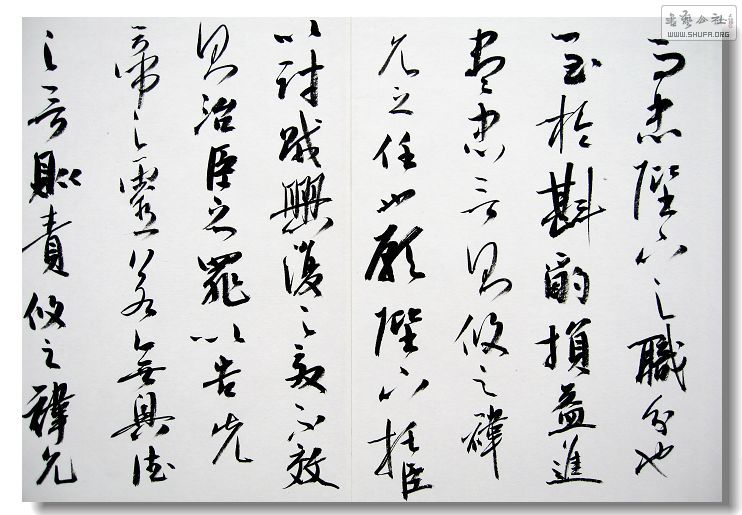 而忠陛下之職分也
至於斟酌損益進
盡忠言則攸之禕
允之任也願陛下托臣
以討賊興復之效不效
則治臣之罪以告先
帝之靈若無興德
之言則責攸之禕允
书艺公社
WWW.SHUFA.ORG